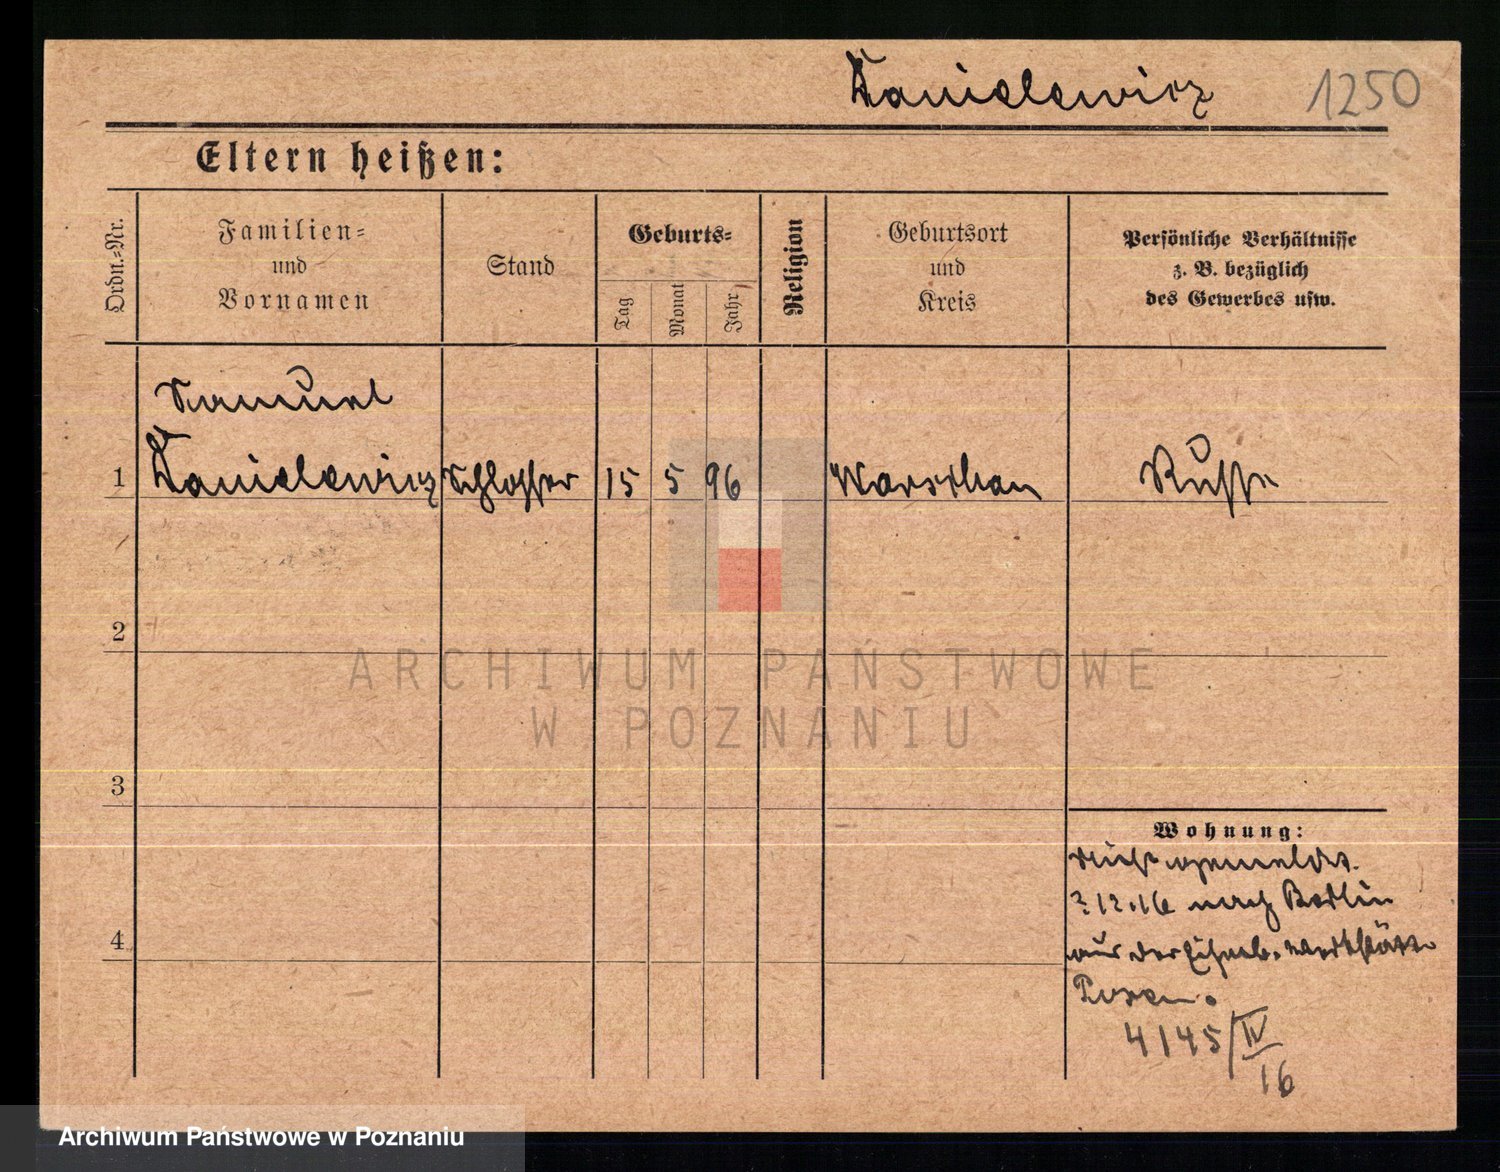 Danielewicz 1250
Eltern heißen:
Ordn.-Nr.
Familien-
und
Vornamen
Stand
Geburts-
Tag
Monat
Jahr
Religion
Geburtsort
und
Kreis
Persönliche Verhältnisse
z. B. bezüglich
des Gewerbes usw.
Samuel
1 Danielewicz Schlosser 15 5 96 Warschau Russe
2
3
4
Wohnung:
nicht gemeldet.
12.16 nach Berlin
aus der Eisenb. Werkstätte
Posen.
4145/IV
16
ARCHIWUM PAŃSTWOWE
W POZNANIU
Archiwum Państwowe w Poznaniu